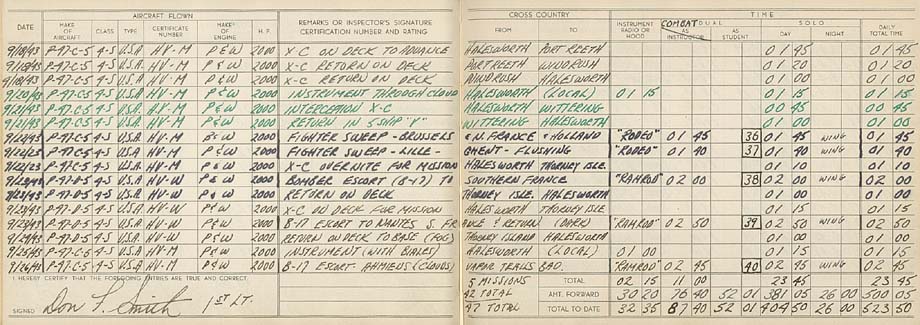 AIRCRAFT FLOWN
DATE MAKE OF AIRCRAFT CLASS TYPE CERTIFICATE NUMBER MAKE OF ENGINE H. P. REMARKS OR INSPECTOR'S SIGNATURE CERTIFICATION NUMBER AND RATING
CROSS COUNTRY TIME
FROM TO INSTRUMENT RADIO OR HOOD COMBAT DUAL AS INSTRUCTOR AS STUDENT SOLO DAY NIGHT DAILY TOTAL TIME
9/18/43 P-47-C-5 4-S U.S.A. HV-M P & W 2000 X-C ON DECK TO ADVANCE HALESWORTH PORTREETH 01 45 01 45
9/18/43 P-47-C-5 4-S U.S.A. HV-M P & W 2000 X-C RETURN ON DECK PORTREETH WINDRUSH 01 20 01 20
9/18/43 P-47-C-5 4-S U.S.A. HV-M P & W 2000 X-C RETURN ON DECK WINDRUSH HALESWORTH 01 00 01 00
9/20/43 P-47-C-5 4-S U.S.A. HV-M P & W 2000 INSTRUMENT THROUGH CLOUD HALESWORTH (LOCAL) 01 15 01 15 01 15
9/21/43 P-47-C-5 4-S U.S.A. HV-M P & W 2000 INTERCEPTION X-C HALESWORTH WITTERING 00 45 00 45
9/21/43 P-47-C-5 4-S U.S.A. HV-M P & W 2000 RETURN IN 5 SHIP "V" WITTERING HALESWORTH 01 00 01 00
9/22/43 P-47-C-5 4-S U.S.A. HV-M P & W 2000 FIGHTER SWEEP - BRUSSELS & N. FRANCE & HOLLAND "RODEO" 01 45 36 01 45 WING 01 45
9/22/43 P-47-C-5 4-S U.S.A. HV-M P & W 2000 FIGHTER SWEEP - LILLE - GHENT - FLUSHING "RODEO" 01 40 37 01 40 WING 01 40
9/22/43 P-47-C-5 4-S U.S.A. HV-M P & W 2000 X-C OVERNITE FOR MISSION HALESWORTH THORNEY ISLE. 01 10 01 10
9/23/43 P-47-D-5 4-S U.S.A. HV-W P & W 2000 BOMBER ESCORT (B-17) TO SOUTHERN FRANCE "RAMROD" 02 00 38 02 00 WING 02 00
9/23/43 P-47-D-5 4-S U.S.A. HV-W P & W 2000 RETURN ON DECK THORNEY ISLE. HALESWORTH 01 00 01 00
9/23/43 P-47-D-5 4-S U.S.A. HV-W P & W 2000 X-C ON DECK FOR MISSION HALESWORTH THORNEY ISLE 01 15 01 15
9/23/43 P-47-D-5 4-S U.S.A. HV-W P & W 2000 B-17 ESCORT TO NANTES S. FRANCE & RETURN (DARK) "RAMROD" 02 50 39 02 50 WING 02 50
9/24/43 P-47-D-5 4-S U.S.A. HV-W P & W 2000 RETURN ON DECK TO BASE (FOG) THORNEY ISLAND HALESWORTH 01 00 01 00
9/25/43 P-47-C-5 4-S U.S.A. HV-M P & W 2000 INSTRUMENT (WITH BIALES) HALESWORTH (LOCAL) 01 00 01 15 01 15
9/26/43 P-47-C-5 4-S U.S.A. HV-M P & W 2000 B-17 ESCORT - AHMIENS (CLOUDS) VAPOR TRAILS BAD. "RAMROD" 02 45 40 02 45 WING 02 45
I. HEREBY CERTIFY THAT THE FOREGOING ENTRIES ARE TRUE AND CORRECT.
SIGNED Don F. Smith 1ST LT.
5 MISSIONS TOTAL 02 15 11 00 23 45 23 45
42 TOTAL AMT. FORWARD 30 20 76 40 52 01 381 05 26 00 500 05
47 TOTAL TOTAL TO DATE 32 35 87 40 52 01 404 50 26 00 523 50